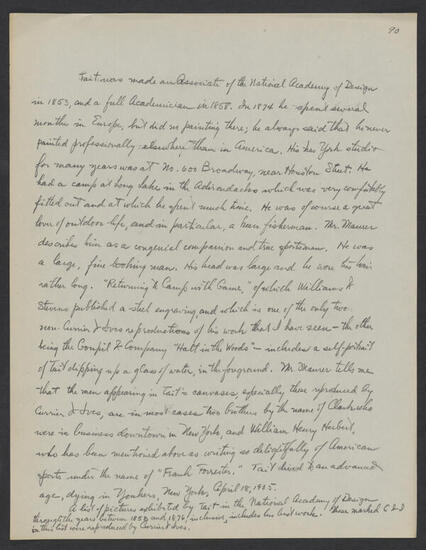 90
Tait was made an Associate of the National Academy of Design
in 1853, and a full Academician in 1858. In 1874 he spent several
months in Europe, but did no painting there; he always said that he never
painted professionally elsewhere than in America. His New York studio
for many years was at No. 600 Broadway, near Houston Street. He
had a camp at Long Lake in the Adirondacks which was very completely
fitted out and at which he spent much time. He was of course a great
lover of outdoor life, and in particular, a keen fisherman. Mr. Maurer
describes him as a congenial companion and true sportsman. He was
a large, fine looking man. His head was large and he wore his hair
rather long. "Returning to Camp with Game," of which Williams &
Stevens published a steel engraving, and which is one of the only two
non-Currier & Ives reproductions of his work that I have seen - the other
being the Goupil & Company "Halt in the Woods" - includes a self portrait
of Tait dipping up a glass of water, in the foreground. Mr. Maurer tells me
that the men appearing in Tait's canvases, especially those reproduced by
Currier & Ives, are in most cases two brothers by the name of Clark who
were in business downtown in New York, and William Henry Herbert,
who has been mentioned above as writing so delightfully of American
sports under the name of "Frank Forrester." Tait lived to an advanced
age, dying in Yonkers, New York, April 18, 1905.
A list of pictures exhibited by Tait in the National Academy of Design
through the years between 1858 and 1876, inclusive, includes his best work. Those marked C & I
in this list were reproduced by Currier & Ives.